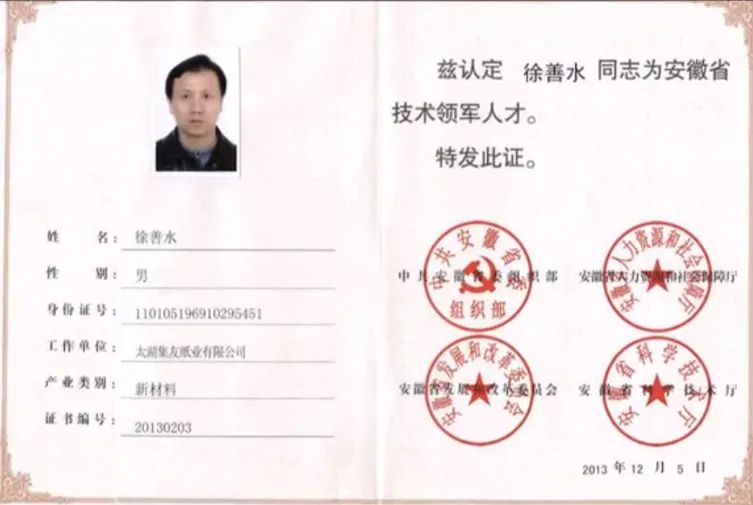 姓名：徐善水
性别：男
身份证号：110105196910295451
工作单位：太湖集友纸业有限公司
产业类别：新材料
证书编号：20130203
兹认定 徐善水 同志为安徽省
技术领军人才。
特发此证。
中共安徽省委
组织部
中共安徽省委组织部
安徽省人力资源和社会保障厅
安徽省人力资源和社会保障厅
安徽省发展和改革委员会
安徽省发展和改革委员会
安徽省科学技术厅
安徽省科学技术厅
2013 年 12 月 5 日